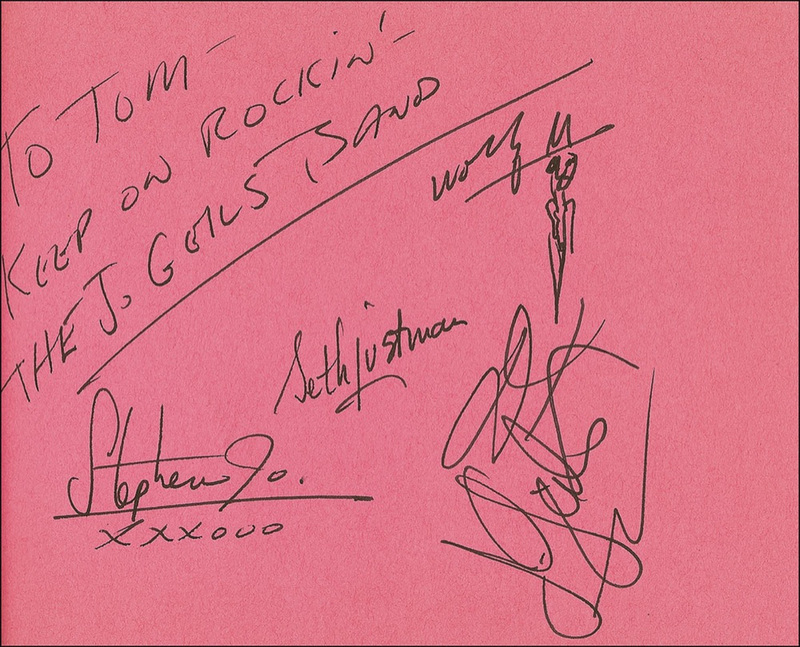 TO TOM—
KEEP ON ROCKIN'—
THE J. GEILS BAND
Wolf
Seth Justman
Stephen Jo.
XXXOOO